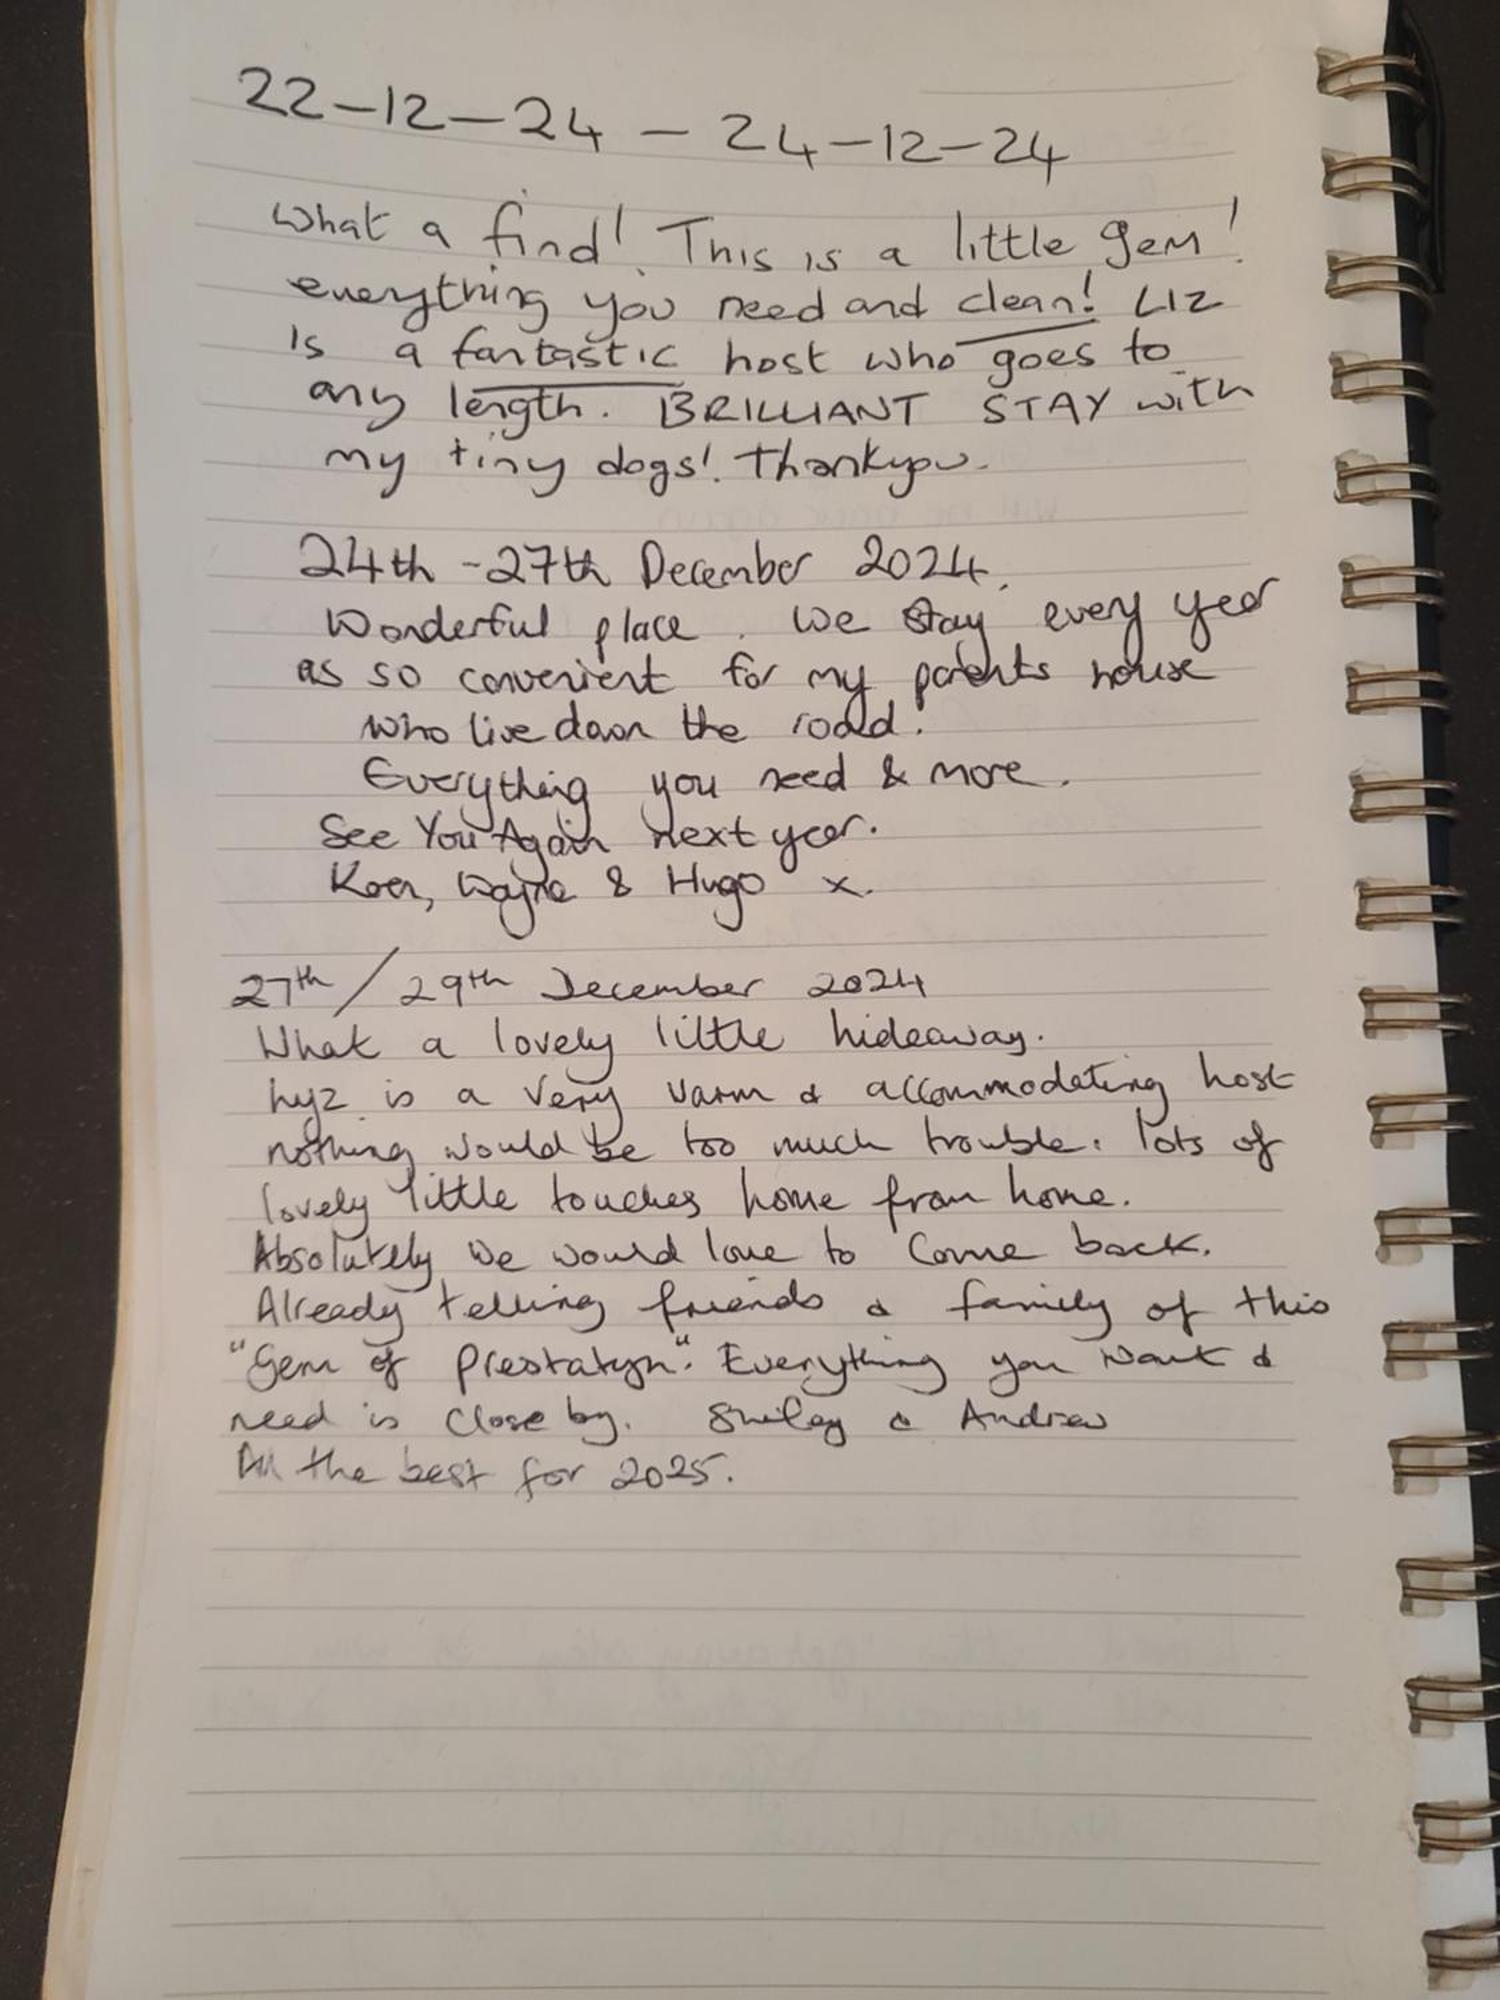 22-12-24 - 24-12-24
What a find! This is a little gem!
everything you need and clean! LIZ
is a fantastic host who goes to
any length. BRILLIANT STAY with
my tiny dogs! Thankyou.
24th - 27th December 2024.
Wonderful place. We stay every year
as so convenient for my parents house
who live down the road!
Everything you need & more.
See You Again next year.
Wayne & Hugo x.
27th / 29th December 2024
What a lovely little hideaway.
Lyz is a very warm & accommodating host
nothing would be too much trouble. lots of
lovely little touches home from home.
Absolutely we would love to come back.
Already telling friends & family of this
"Gem of Prestatyn". Everything you want &
need is close by. & Andrew
All the best for 2025.